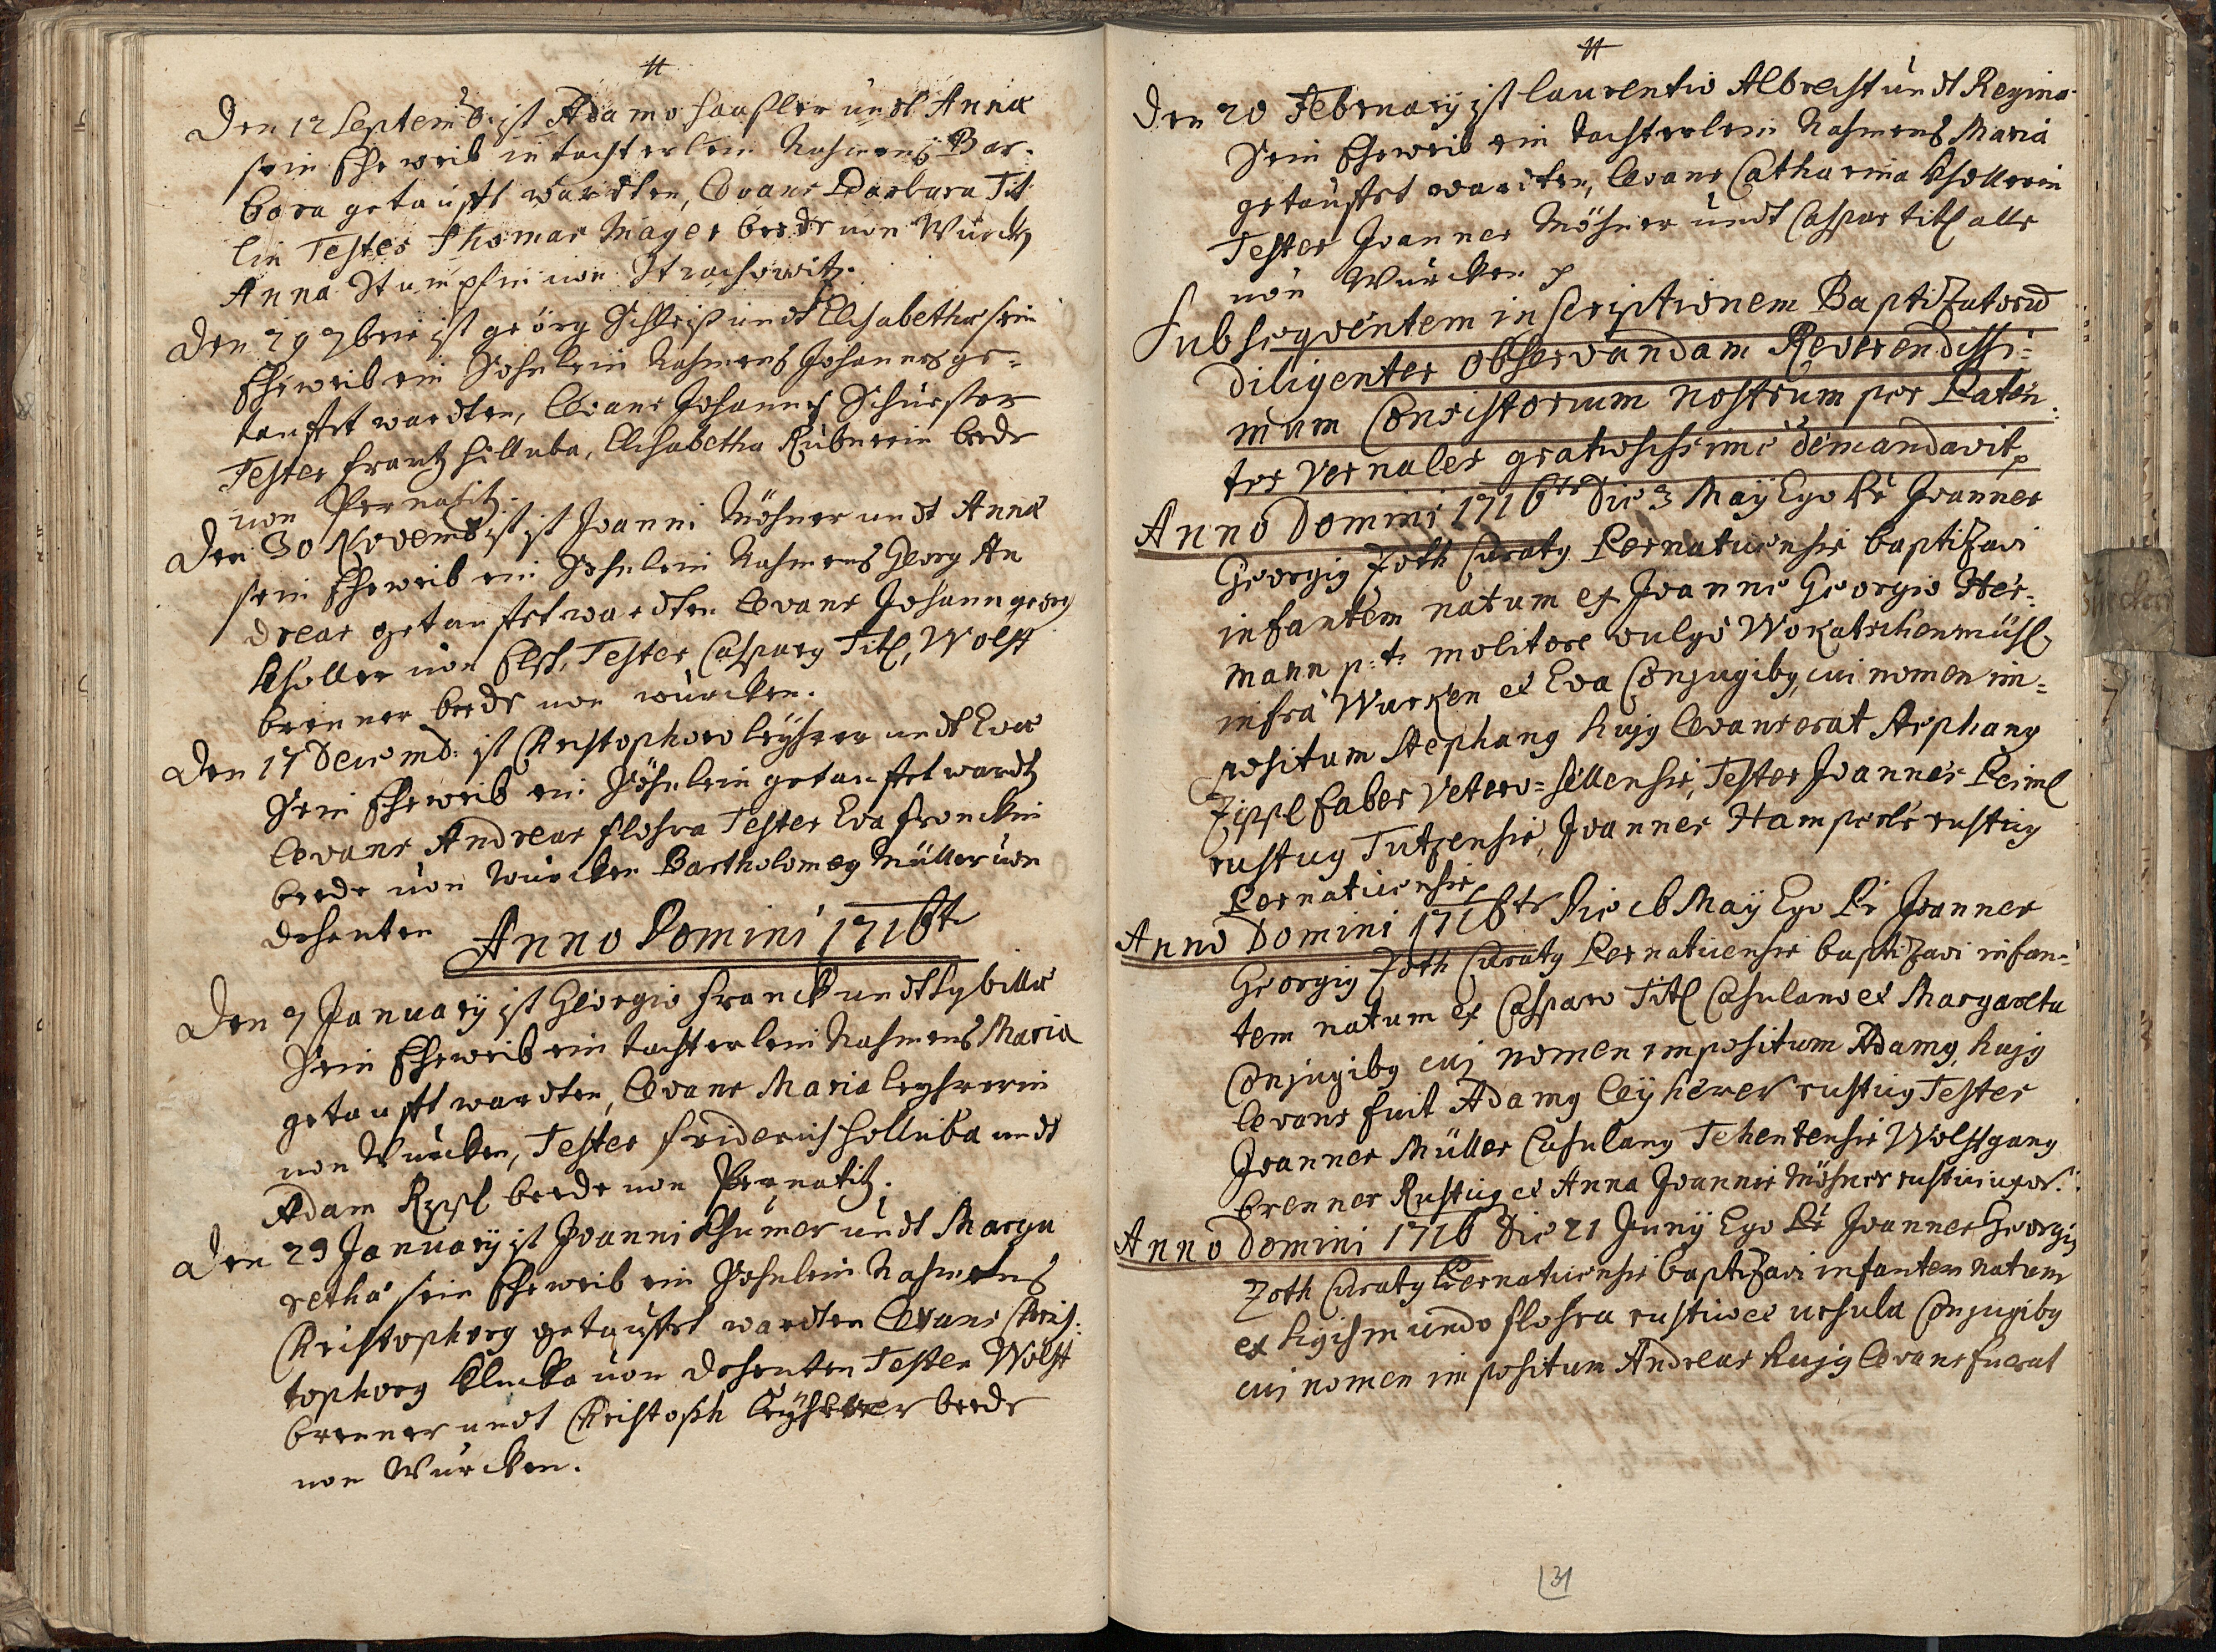 Den 12 Septemb: ist Adamo Haaßler undt Anna
sein Eheweib in tochterlein Nahmens Bar-
bara getaufft wardten, Levans Barbara Tit
lin Testes Thomas Mayer beede von Wurcken
Anna Stumpfin von Strachowitz.
Den 29 7bris ist georg Schleiß undt Elisabetha sein
Eheweib ein Sohnlein Nahmens Johannes ge-
taufft wardten, Levans Johannes Schuester
Testes Frantz Hilluba, Elisabetha Rubnerin beede
von Pernatitz.
Den 30 Novemb ist Joanni Möhner undt Anna
sein Eheweib ein Sohnlein Nahmens Georg An
dreas getaufft wardten Levans Johann georg
Kholler von Elsch, Testes Casparg Titl, Wolff
brenner beede von wurcken.
Den 17 Decemb: ist Christophoro leyherer undt Eva
Sein Eheweib ein Söhnlein getaufft wardt
Levans Andreas flohra Testes Eva Fronckin
beede von Wurcken Bartholomeg Müller von
dehenten
Anno Domini 1716te
Den 7 January ist Georgio Franck undt Sybilla
Sein Eheweib ein tochterlein Nahmens Maria
getaufft wardten, Levans Maria leyhrerin
von Wurcken, Testes Friderich Holluba undt
Adam Rppl beede von Pernatitz.
Den 29 January ist Joanni Khumer undt Marga
retha sein Eheweib ein Sohnlein Nahmens
Christophorg getaufft wardten Levans Chris:
tophorg Klucka von dehenten Testes Wolff
brenner undt Christoph leyherer beede
von Wurcken.
Den 20 February ist laurentio Albrecht undt Regina
Sein Eheweib ein tochterlein Nahmens Maria
getaufft wardten, Levans Catharina Khollerin
Testes Joannes Möhner undt Caspar titl alle
von Wurcken
Subseqventem inscriptionem Baptizatorū
diligenter observandam Reverendissi-
mum Consistorium nostrum per Paten
tes Vernales gratiosissime demandavit
Anno Domini 1716te Die 3 Maÿ Ego Pr Joannes
Georgig Zoth Curatg Pernaticensis baptizavi
infantem natum ex Joanne Georgio Her-
mann p:t: molitore vulgo Wokatschenmühl
infra Wurken et Eva Conjugibg, cui nomen im-
positum Stephang hujg Levans erat Stephang
Zippl faber Vetero-sellensis, Testes Joannes Peiml
rusticg Tutzensis, Joannes Hamperle rusticg
Pernaticensis
Anno Domini 1716te Die 16 Maÿ Ego Pr Joannes
Georgig Zoth Curatg Pernaticensis baptizavi infan-
tem natum ex Casparo Titl Casulano et Margaretha
Conjugibg cui nomen impositum Adamg, hujg
Levans fuit Adamg leyherer rusticg Testes
Joannes Müller Casulang Tehentensis Wolffgang
brenner Rusticg et Anna Joannis Möhner rustici uxor.
Anno Domini 1716 Die 21 Junÿ Ego Pr Joannes Georgig
Zoth Curatg Pernaticensis baptizavi infantem natum
ex Sigismundo flohra rustico et ursula Conjugibg
cui nomen impositum Andreas hujg Levans fuerat
31